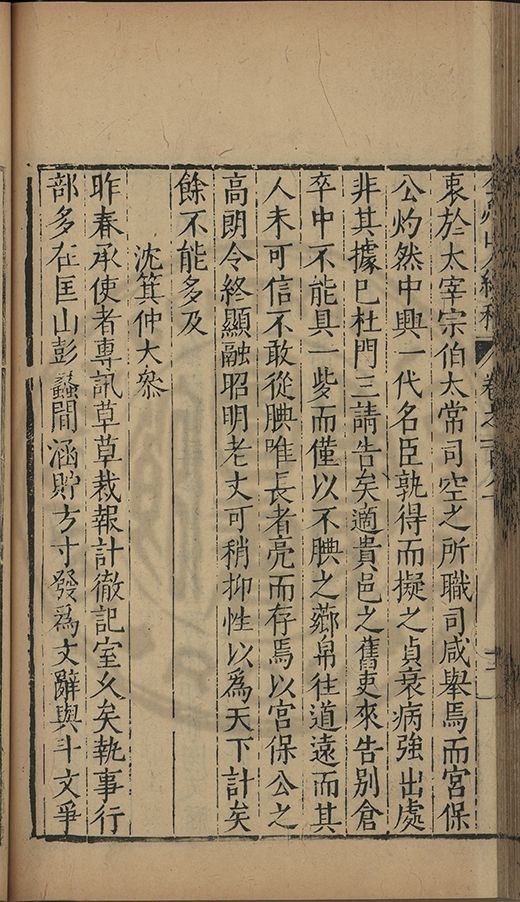 山人續稿 卷之
衷於太宰宗伯太常司空之所職司咸舉焉而宮保
公灼然中興一代名臣孰得而擬之貞衰病強出處
非其據巳杜門三請告矣適貴邑之舊吏來告別倉
卒中不能具一些而僅以不腆之薌帛往道遠而其
人未可信不敢從腆唯長者亮而存焉以宮保公之
高朗令終顯融昭明老丈可稍抑性以爲天下計矣
餘不能多及
沈箕仲大叅
昨春承使者專訊草草裁報計徹記室久矣執事行
部多在匡山彭蠡間涵貯方寸發爲文辭與斗文爭